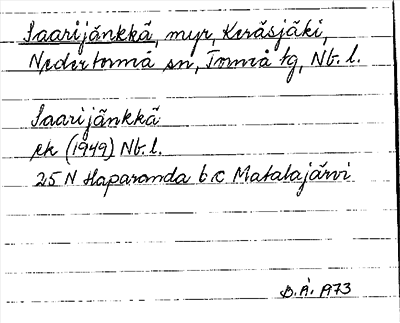 Saarijänkkä, myr, Keräsjäki,
Nedertorneå sn, Torneå tg, Nb. l.
Saarijänkkä
ek (1949) Nb. l.
25 N Haparanda b c Matalajärvi
B.Å. 1973